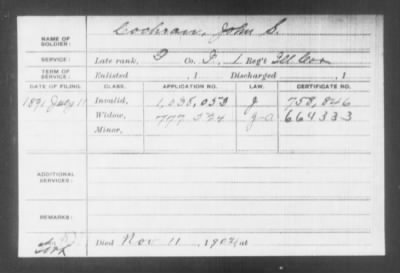 Cochran, John S.
NAME OF SOLDIER:
SERVICE: Late rank, Co. F, 1 Reg't Ill Cav
TERM OF SERVICE: Enlisted , 1 Discharged , 1
DATE OF FILING. CLASS. APPLICATION NO. LAW. CERTIFICATE NO.
1891 July 11 Invalid, 1,038,053 J 758,846
Widow, 777 534 g-a 664333
Minor,
ADDITIONAL SERVICES:
REMARKS:
Died Nov 11, 1902, at